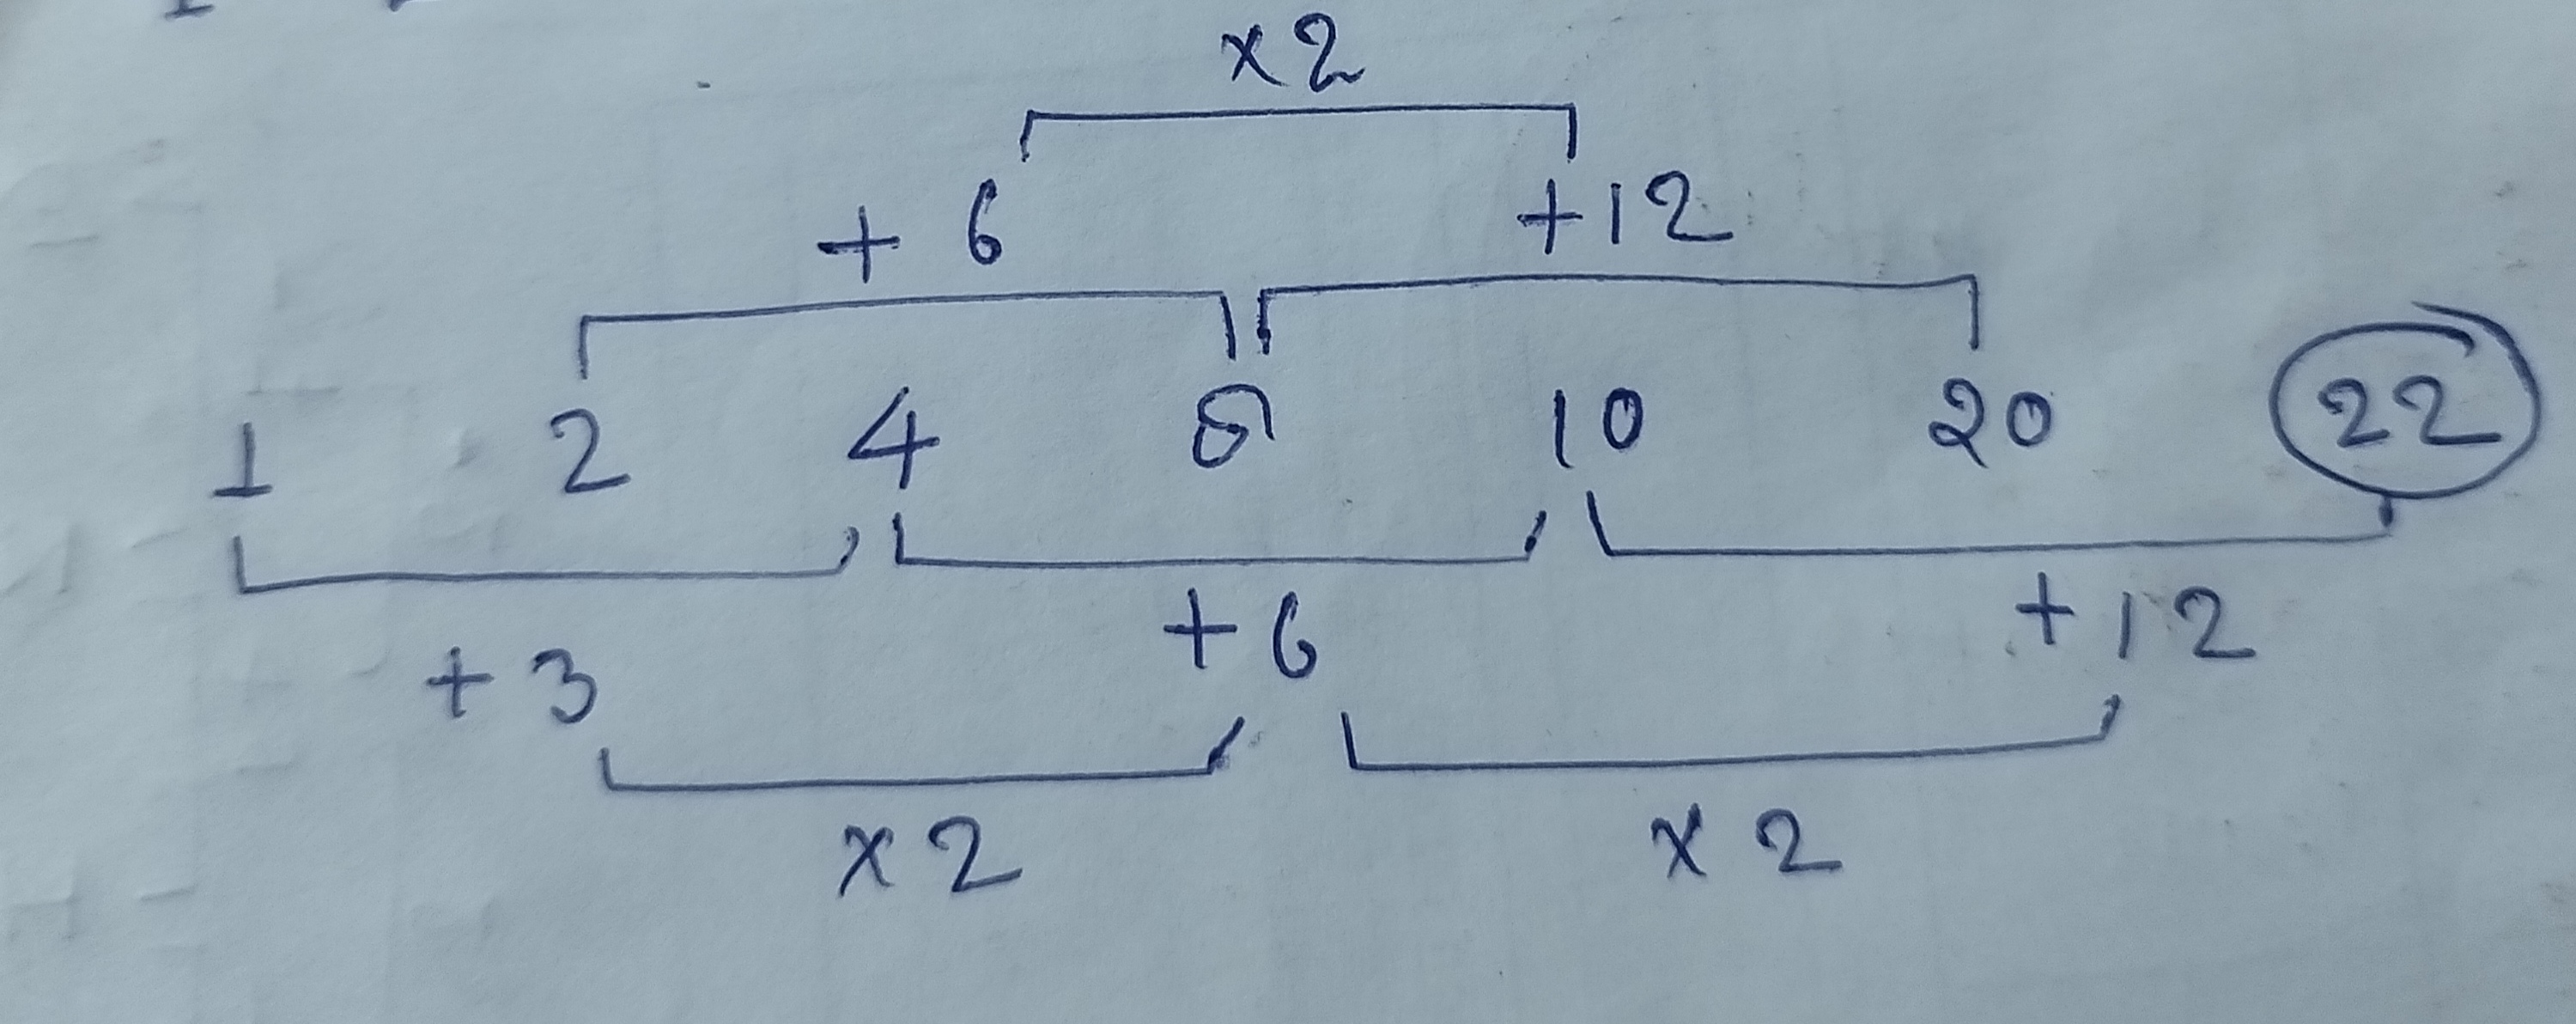 ×2
+6 +12
1 2 4 8 10 20 22
+3 +6 +12
×2 ×2